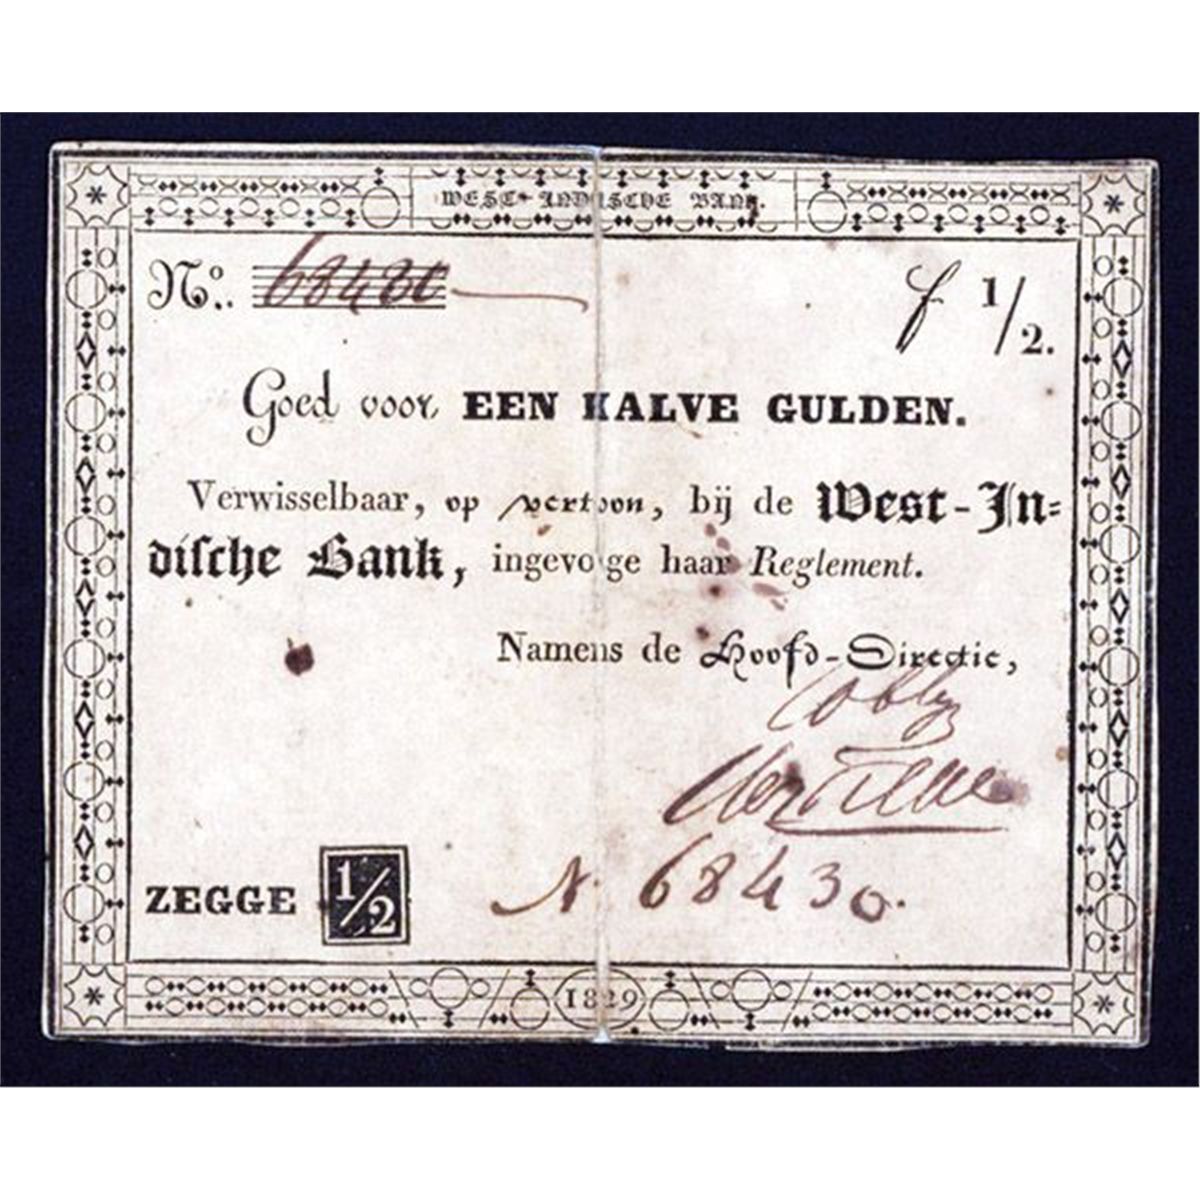 WEST-INDISCHE BANK.
No. 68430
f 1/2.
Goed voor EEN HALVE GULDEN.
Verwisselbaar, op vertoon, bij de West-In=
dische Bank, ingevolge haar Reglement.
Namens de Hoofd-Directie,
ZEGGE 1/2
N. 68430.
1829